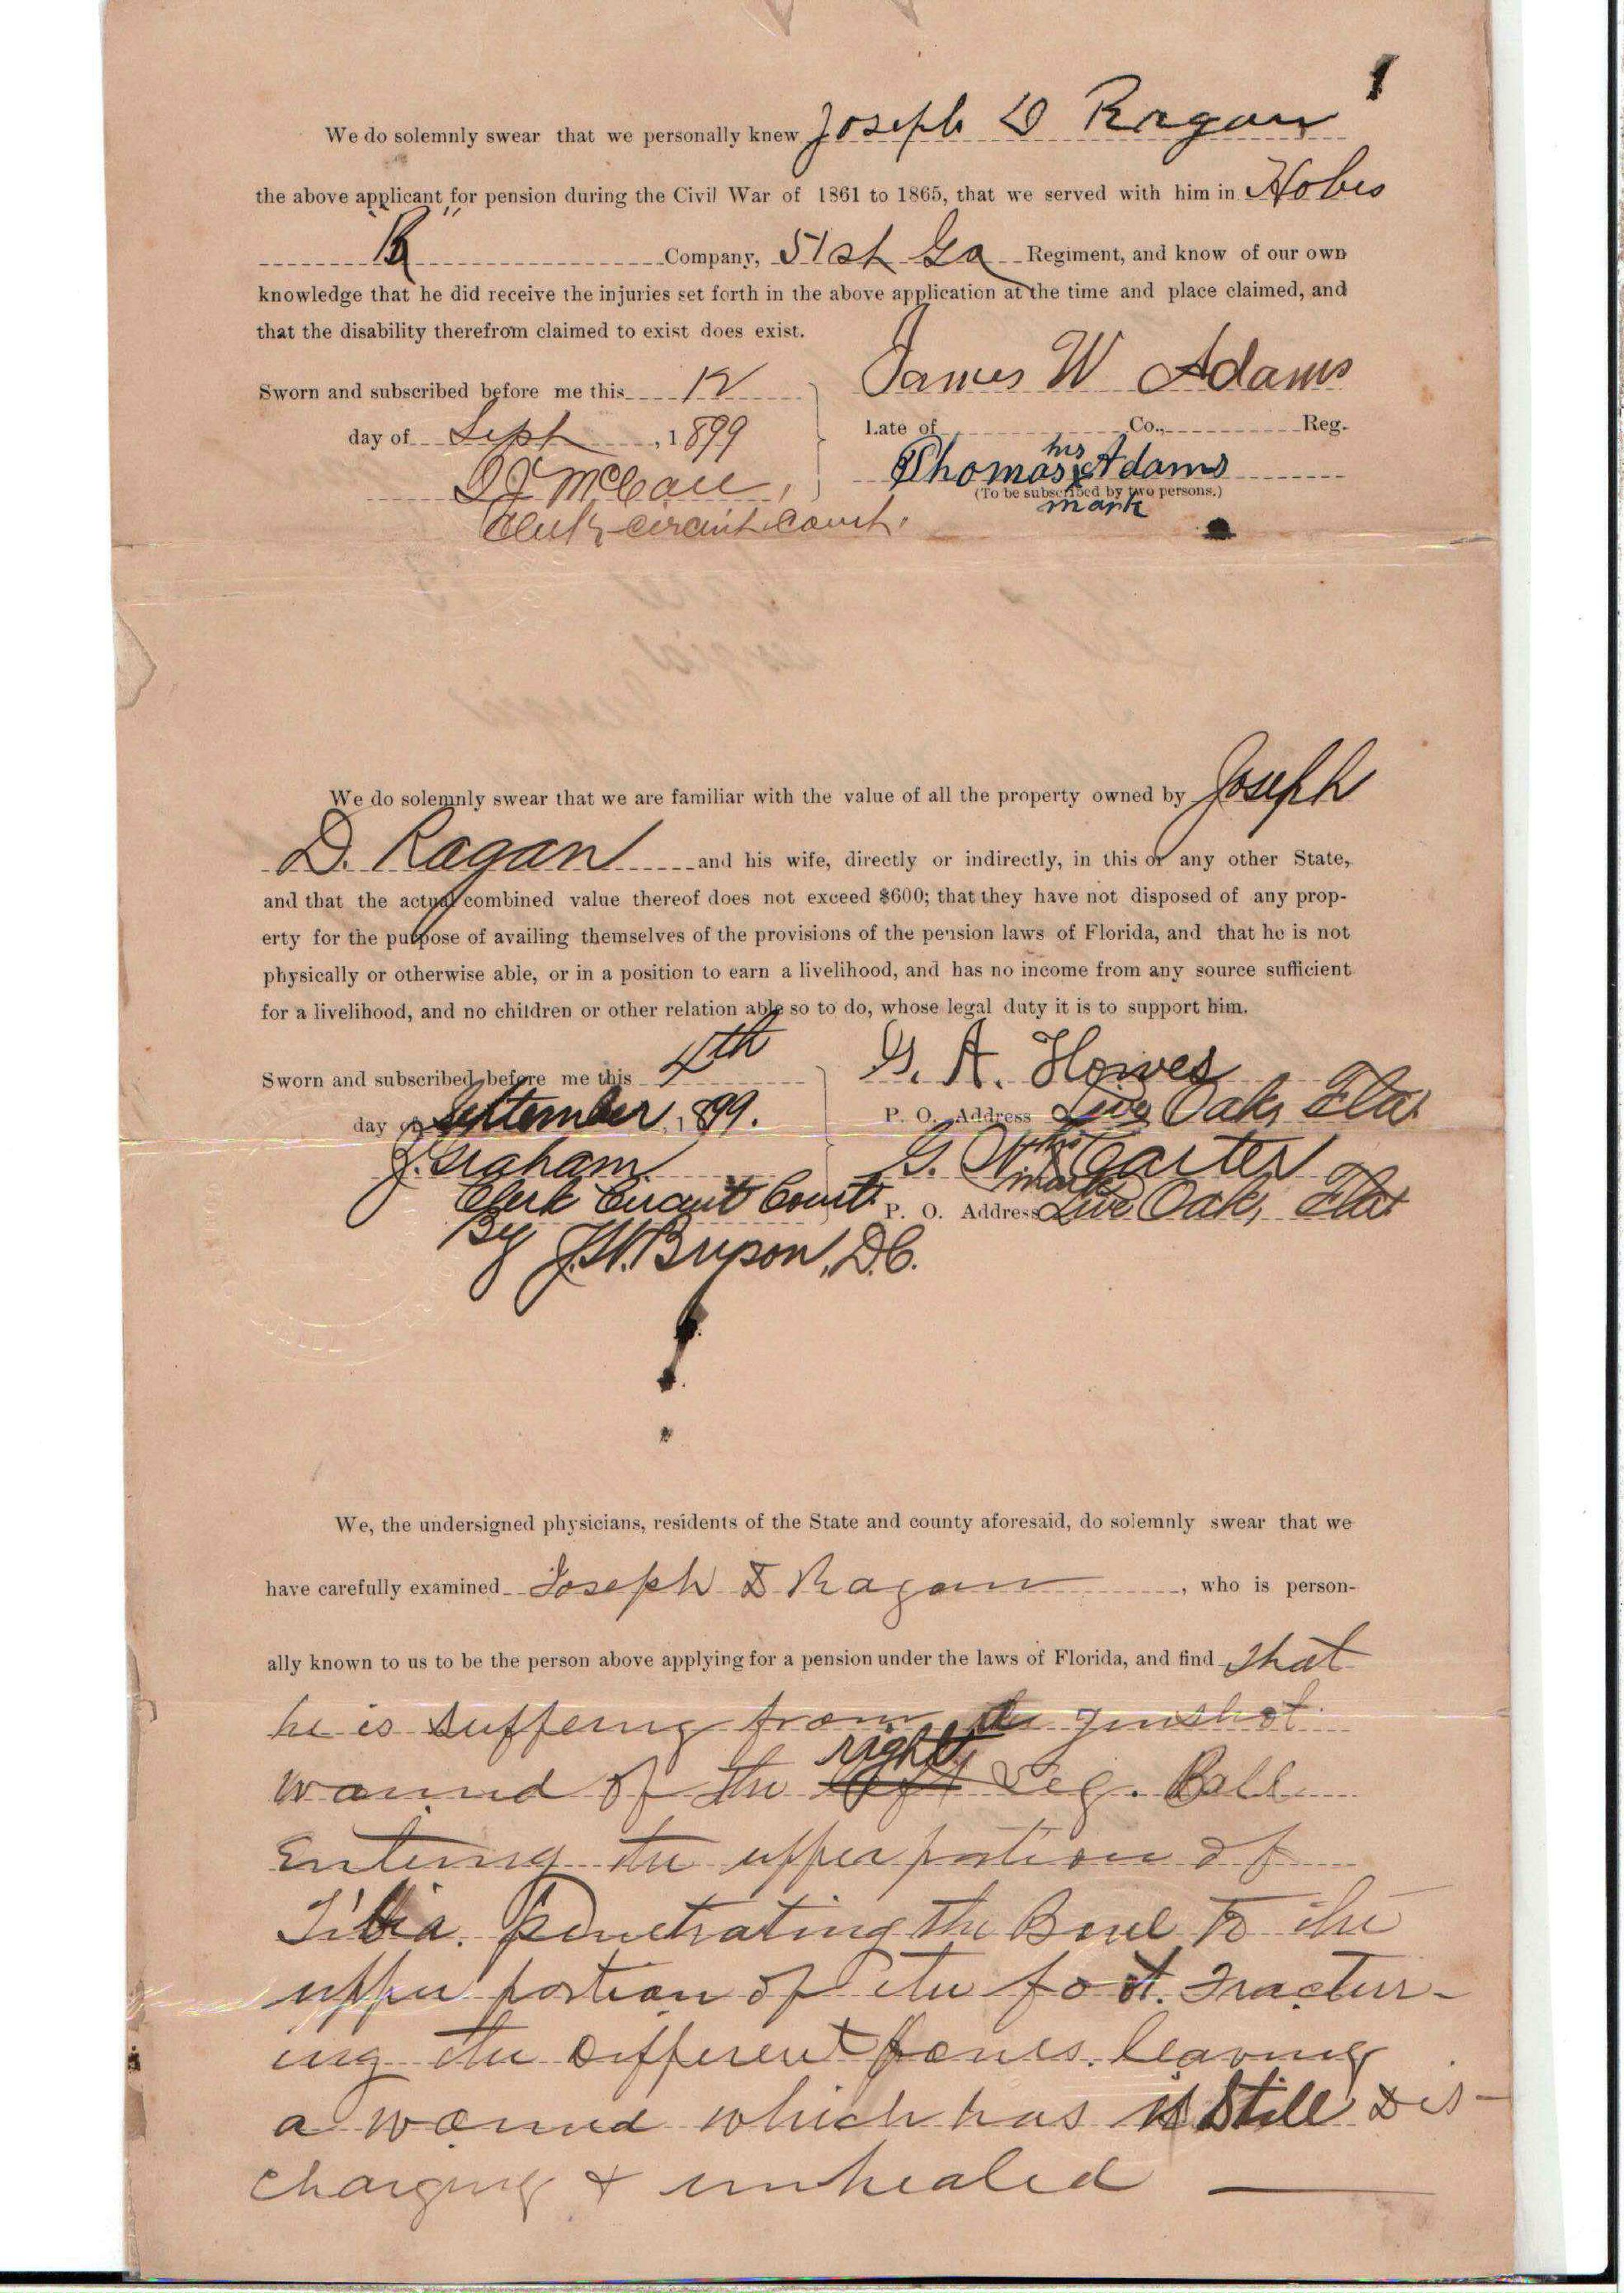 We do solemnly swear that we personally knew Joseph D Ragan
the above applicant for pension during the Civil War of 1861 to 1865, that we served with him in
"B" Company, 51st Ga Regiment, and know of our own
knowledge that he did receive the injuries set forth in the above application at the time and place claimed, and
that the disability therefrom claimed to exist does exist.
Sworn and subscribed before me this 12
day of Sept, 1899
James W Adams
Late of Co., Reg.
his
Thomas x Adams
(To be subscribed by two persons.)
mark
McCall
Clerk circuit court.
We do solemnly swear that we are familiar with the value of all the property owned by Joseph
D. Ragan and his wife, directly or indirectly, in this or any other State,
and that the actual combined value thereof does not exceed $600; that they have not disposed of any prop-
erty for the purpose of availing themselves of the provisions of the pension laws of Florida, and that he is not
physically or otherwise able, or in a position to earn a livelihood, and has no income from any source sufficient
for a livelihood, and no children or other relation able so to do, whose legal duty it is to support him.
Sworn and subscribed before me this 4th
day of September, 1899.
J. Graham
Clerk Circuit Court
By J.W. Bryson, D.C.
G. A. Howes
P. O. Address Live Oak, Fla
his
G. W. x Carter
mark
P. O. Address Live Oak, Fla
We, the undersigned physicians, residents of the State and county aforesaid, do solemnly swear that we
have carefully examined Joseph D Ragan, who is person-
ally known to us to be the person above applying for a pension under the laws of Florida, and find that
he is suffering from a gunshot
right
wound of the left Leg. Ball
Entering the upper portion of
Tibia. Penetrating the Bone To the
upper portion of the foot. Fractur-
ing the different bones. leaving
a wound which has is still dis-
charging & unhealed